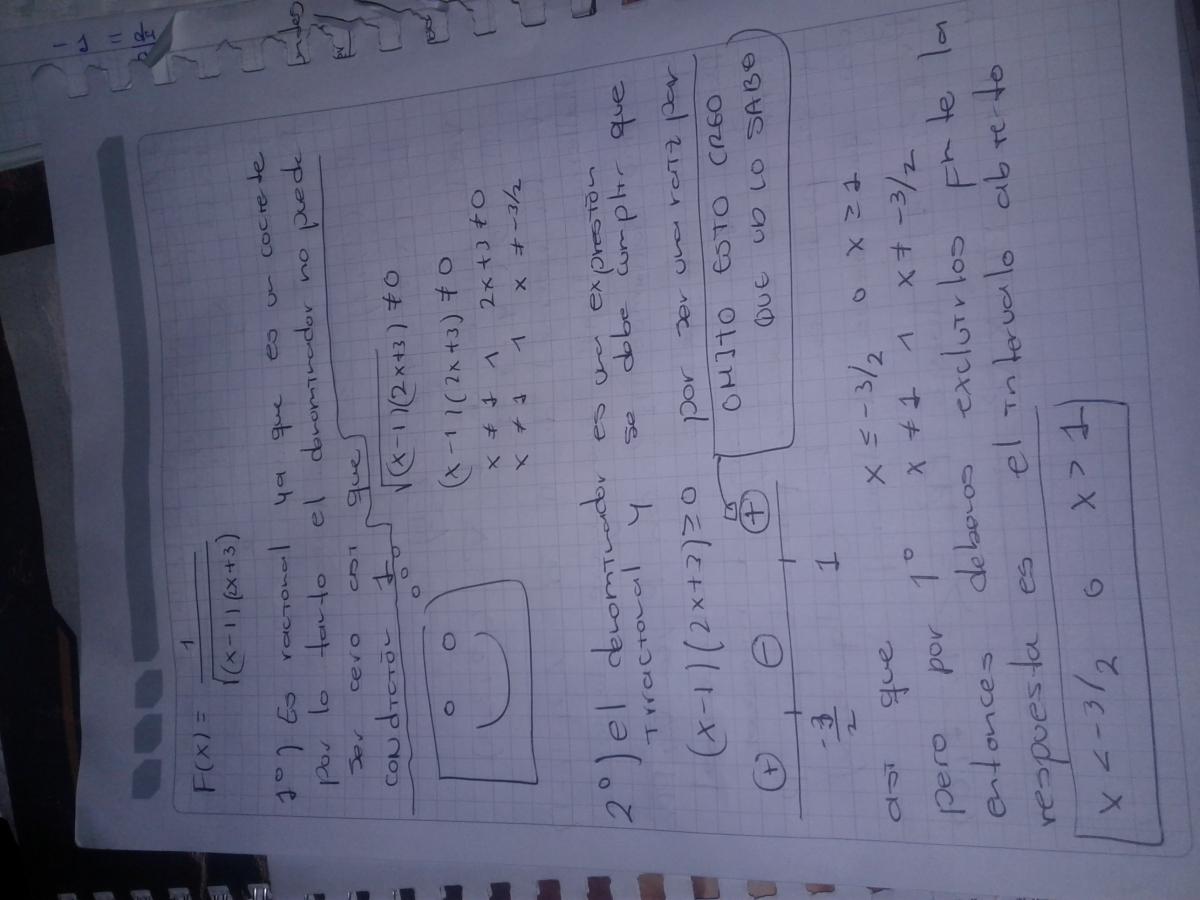 F(x) = 1
√(x-1)(2x+3)
1°) Es racional ya que es un cociente
por lo tanto el denominador no puede
ser cero así que
CONDICIÓN 1°
√(x-1)(2x+3) ≠ 0
(x-1)(2x+3) ≠ 0
x ≠ 1 1 2x+3 ≠ 0
x ≠ 1 1 x ≠ -3/2
2°) el denominador es una expresión
irracional y se debe cumplir que
(x-1)(2x+3) ≥ 0 por ser una raíz par
+ - +
-3/2 1
OMITO ESTO CREO
QUE UD LO SABO
así que x ≤ -3/2 o x ≥ 1
pero por 1° x ≠ 1 1 x ≠ -3/2
entonces debenos exluirlos Fn te la
respuesta es el intervalo abierto
x < -3/2 o x > 1